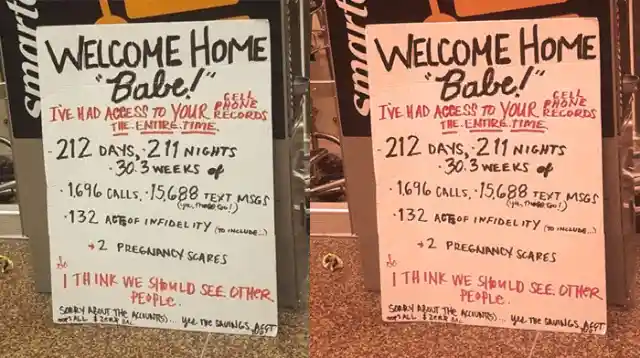 smart
WELCOME HOME
"Babe!"
I'VE HAD ACCESS TO YOUR CELL PHONE RECORDS
THE ENTIRE TIME.
212 DAYS, 211 NIGHTS
30.3 WEEKS of
1,696 CALLS, 15,688 TEXT MSGS
132 ACTS OF INFIDELITY (TO INCLUDE...)
→ 2 PREGNANCY SCARES
So
I THINK WE SHOULD SEE OTHER
PEOPLE.
SORRY ABOUT THE ACCOUNTS)... Yes THE SAVINGS, ACCT
ALL $ZERO
smart
WELCOME HOME
"Babe!"
I'VE HAD ACCESS TO YOUR CELL PHONE RECORDS
THE ENTIRE TIME.
212 DAYS, 211 NIGHTS
30.3 WEEKS of
1,696 CALLS, 15,688 TEXT MSGS
132 ACTS OF INFIDELITY (TO INCLUDE...)
→ 2 PREGNANCY SCARES
So
I THINK WE SHOULD SEE OTHER
PEOPLE.
SORRY ABOUT THE ACCOUNTS)... Yes THE SAVINGS, ACCT
ALL $ZERO